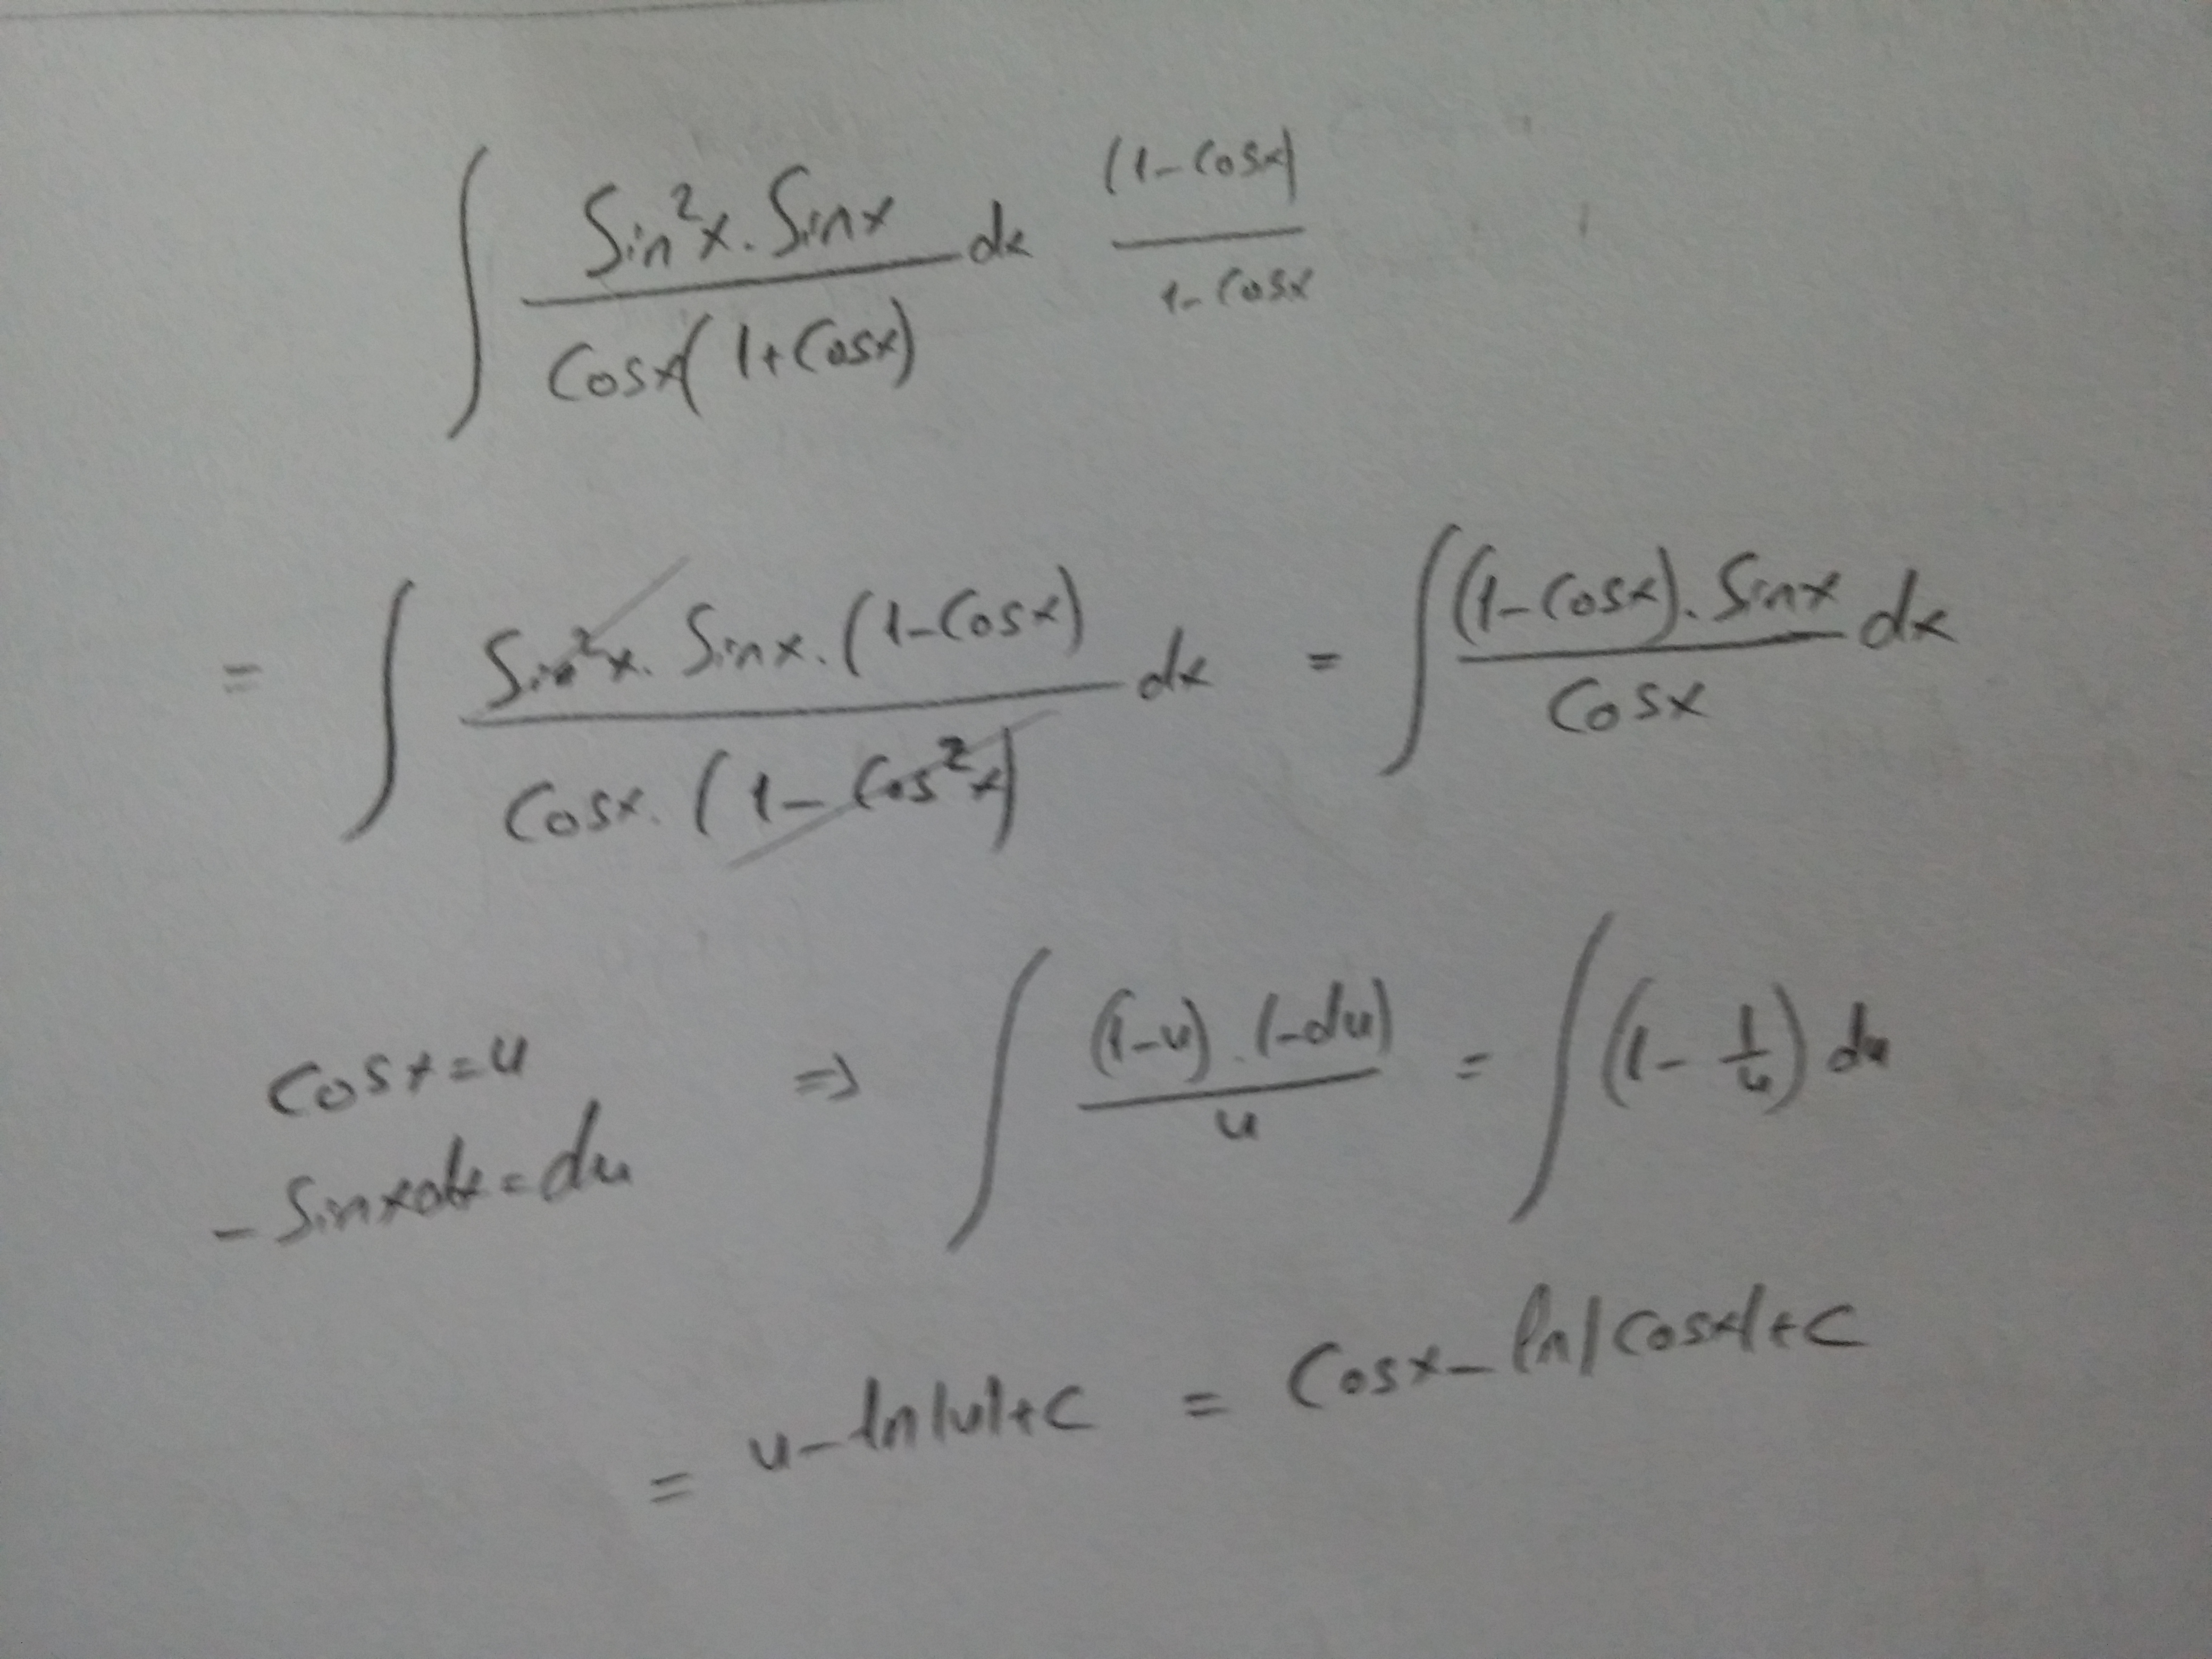 ∫ Sin²x . Sinx / Cosx(1+Cosx) dx (1-Cosx) / 1-Cosx
= ∫ Sin²x . Sinx . (1-Cosx) / Cosx . (1-Cos²x) dx = ∫ (1-Cosx) . Sinx / Cosx dx
Cosx=u ⇒ ∫ (1-u) . (-du) / u = ∫ (1 - 1/u) du
- Sinxdx = du
= u-ln|u|+C = Cosx-ln|Cosx|+C